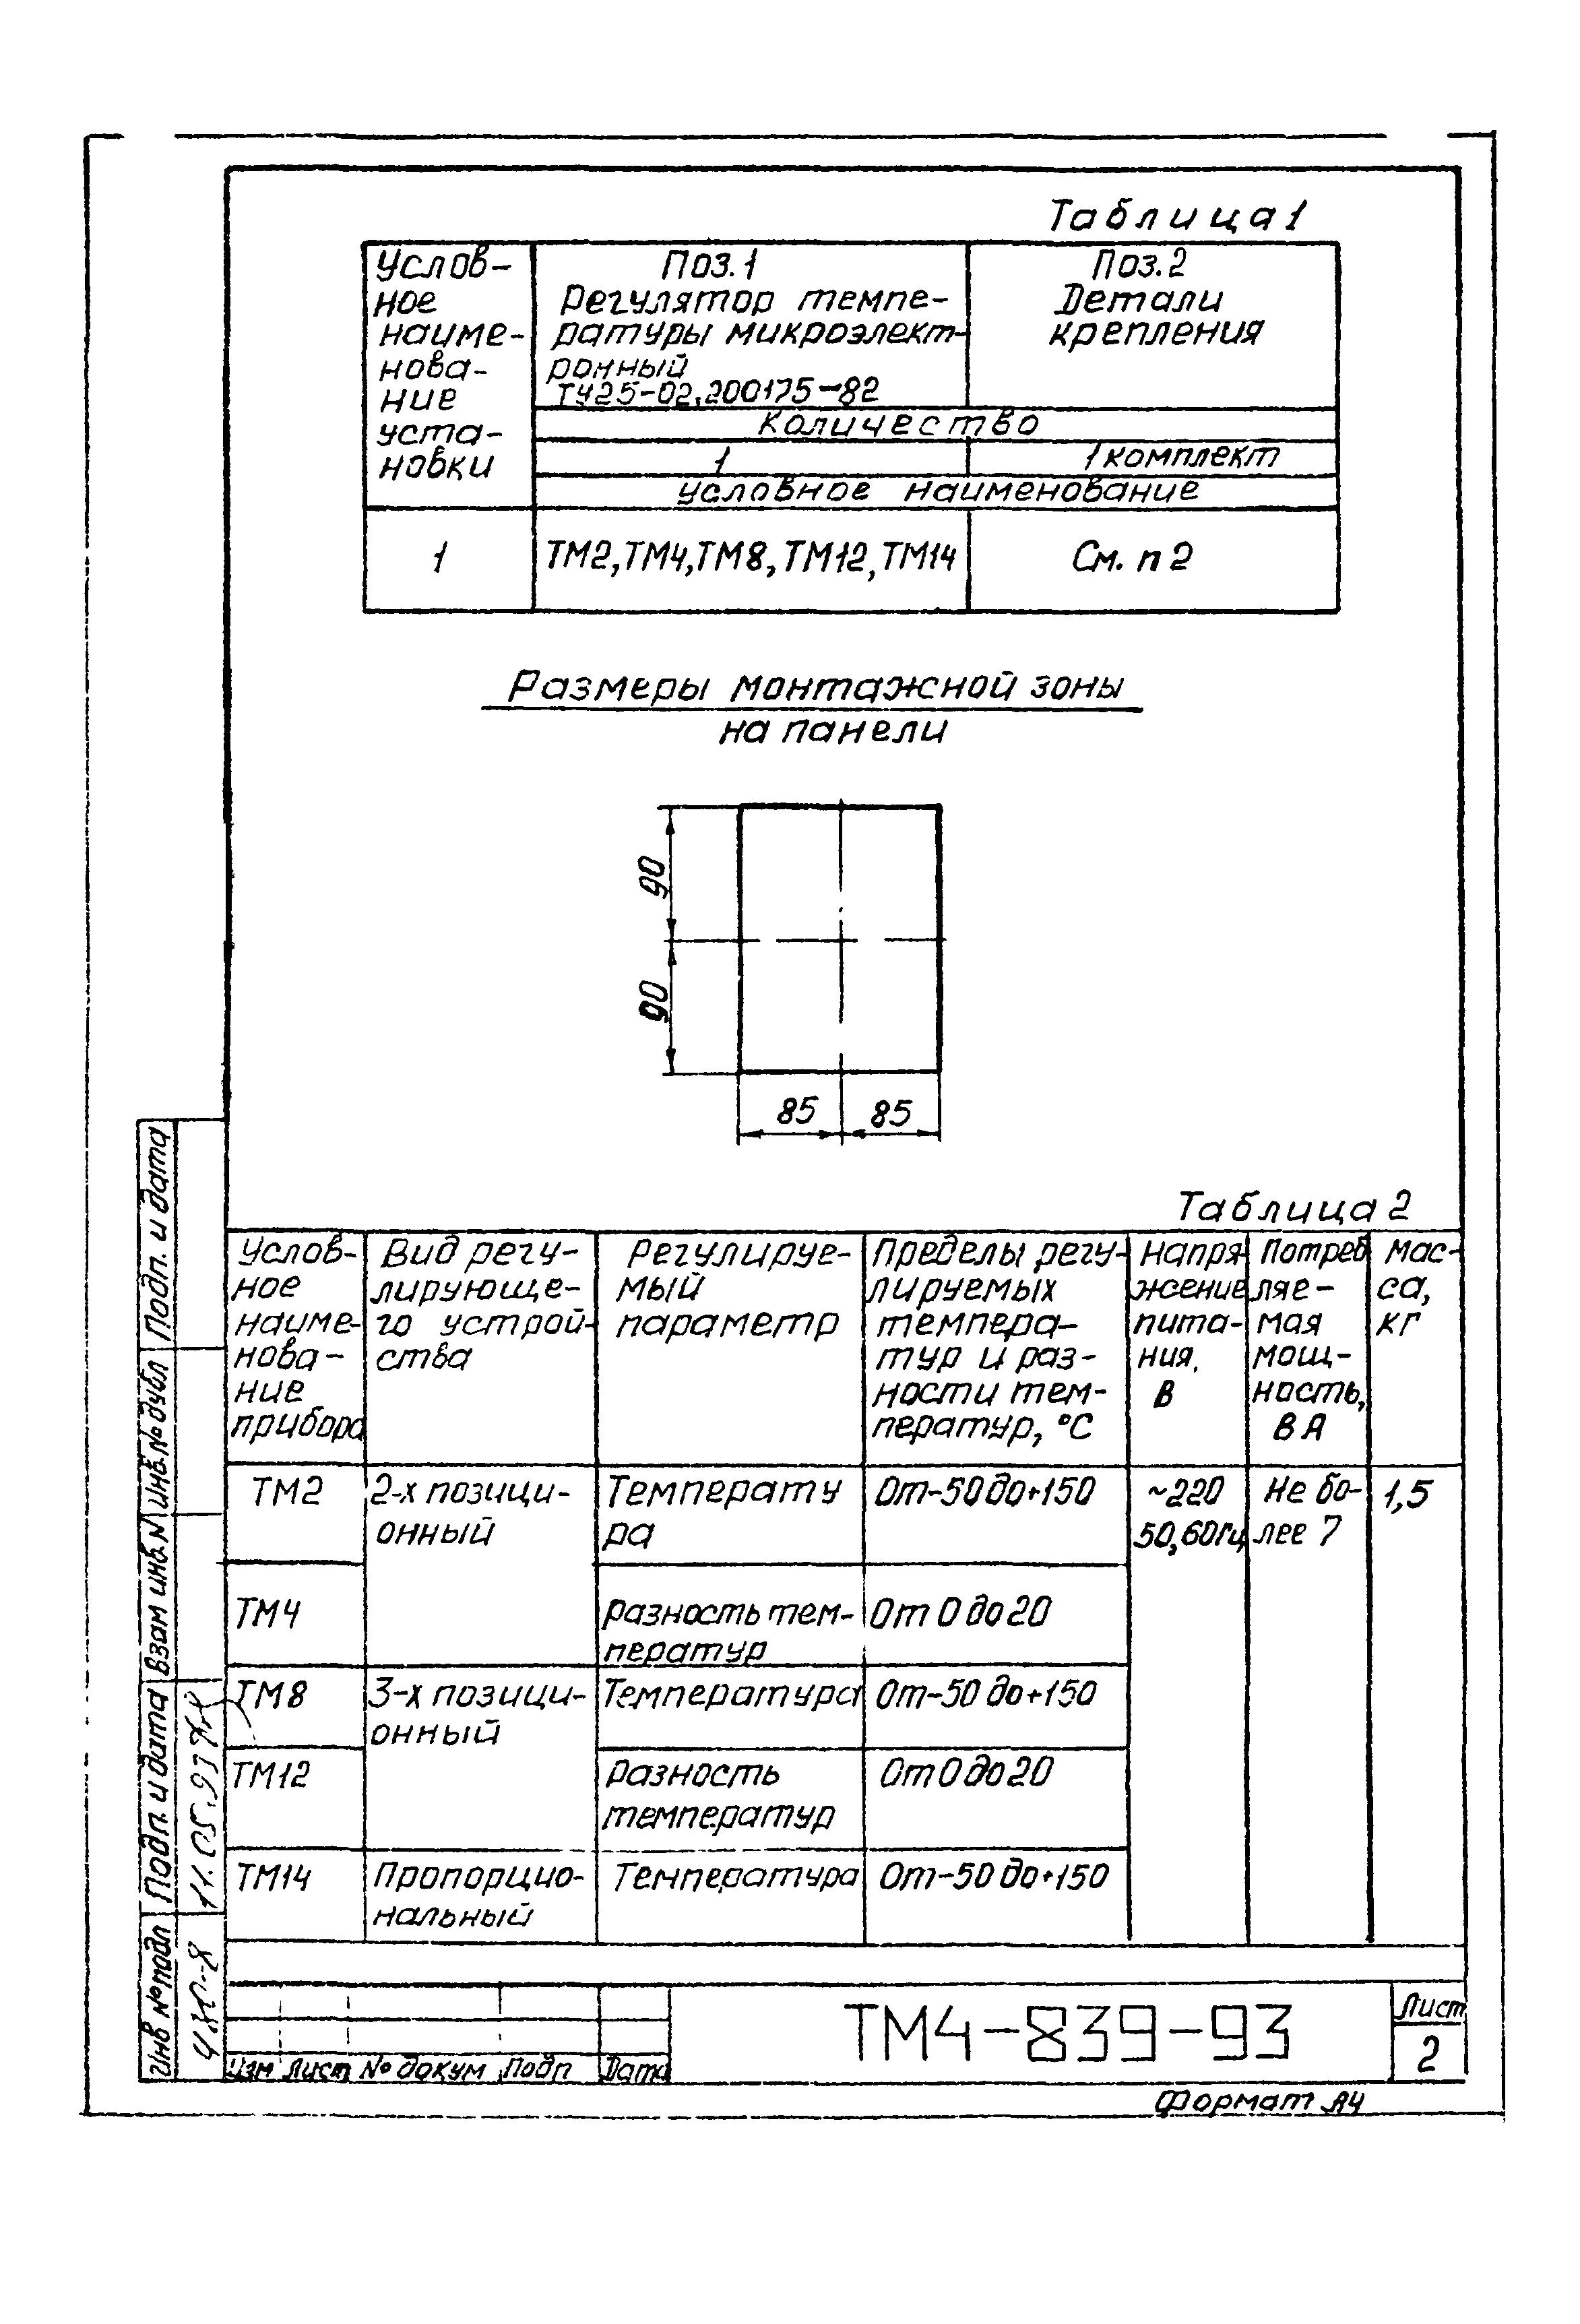 Таблица 1
Услов-
ное
наиме-
нова-
ние
уста-
новки
Поз.1
Регулятор темпе-
ратуры микроэлект-
ронный
ТУ25-02.200175-82
Поз.2
Детали
крепления
Количество
1
1 комплект
Условное наименование
1
ТМ2,ТМ4,ТМ8,ТМ12,ТМ14
См. п 2
Размеры монтажной зоны
на панели
90
90
85
85
Таблица 2
Услов-
ное
наиме-
нова-
ние
прибора
Вид регу-
лирующе-
го устрой-
ства
Регулируе-
мый
параметр
Пределы регу-
лируемых
темпера-
тур и раз-
ности тем-
ператур, °С
Напря-
жение
пита-
ния,
В
Потреб
ляе-
мая
мощ-
ность,
ВА
Мас-
са,
кг
ТМ2
2-х позици-
онный
Температу
ра
От-50 до+150
~220
50,60Гц
Не бо-
лее 7
1,5
ТМ4
Разность тем-
ператур
От 0 до 20
ТМ8
3-х позици-
онный
Температура
От-50 до+150
ТМ12
Разность
температур
От 0 до 20
ТМ14
Пропорцио-
нальный
Температура
От-50 до+150
Подп. и дата
Инв.№ дубл
Взам инв.N
Подп. и дата
11.05.93
Инв № подл
Изм Лист № докум Подп Дата
ТМ4-839-93
Лист
2
Формат А4